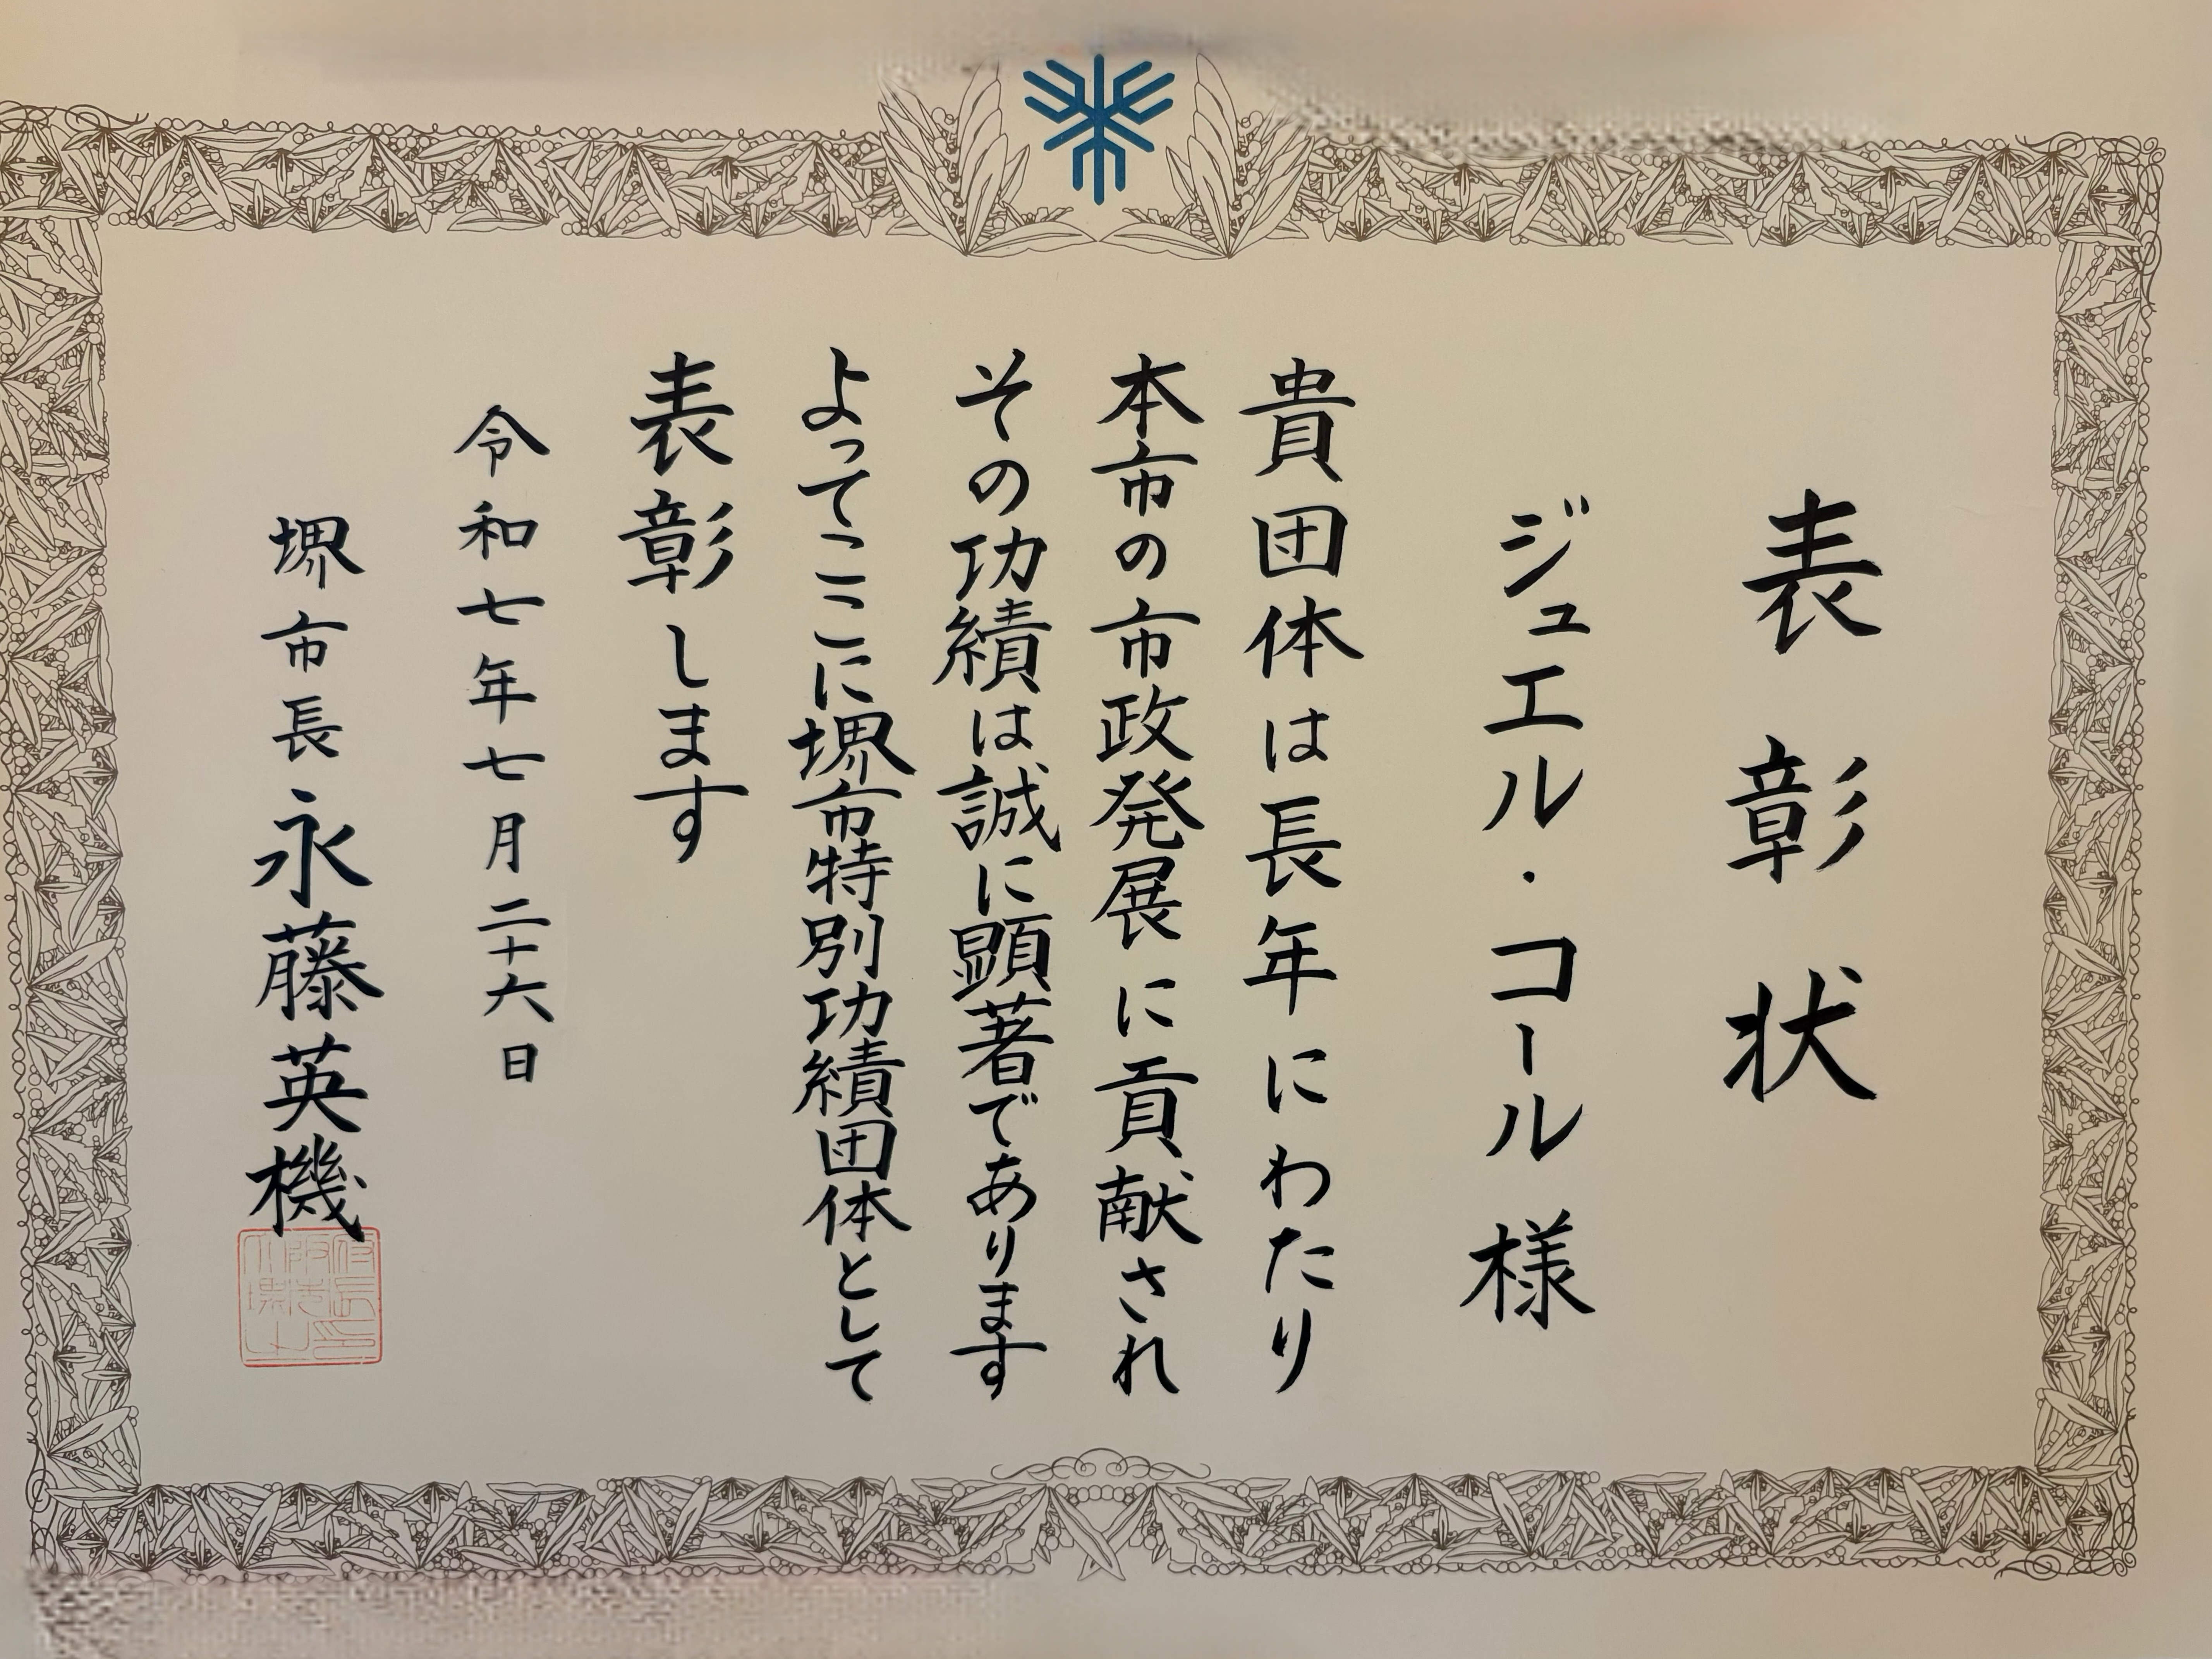 表彰状
ジュエル・コール様
貴団体は長年にわたり
本市の市政発展に貢献され
その功績は誠に顕著であります
よってここに堺市特別功績団体として
表彰します
令和七年七月二十六日
堺市長永藤英機